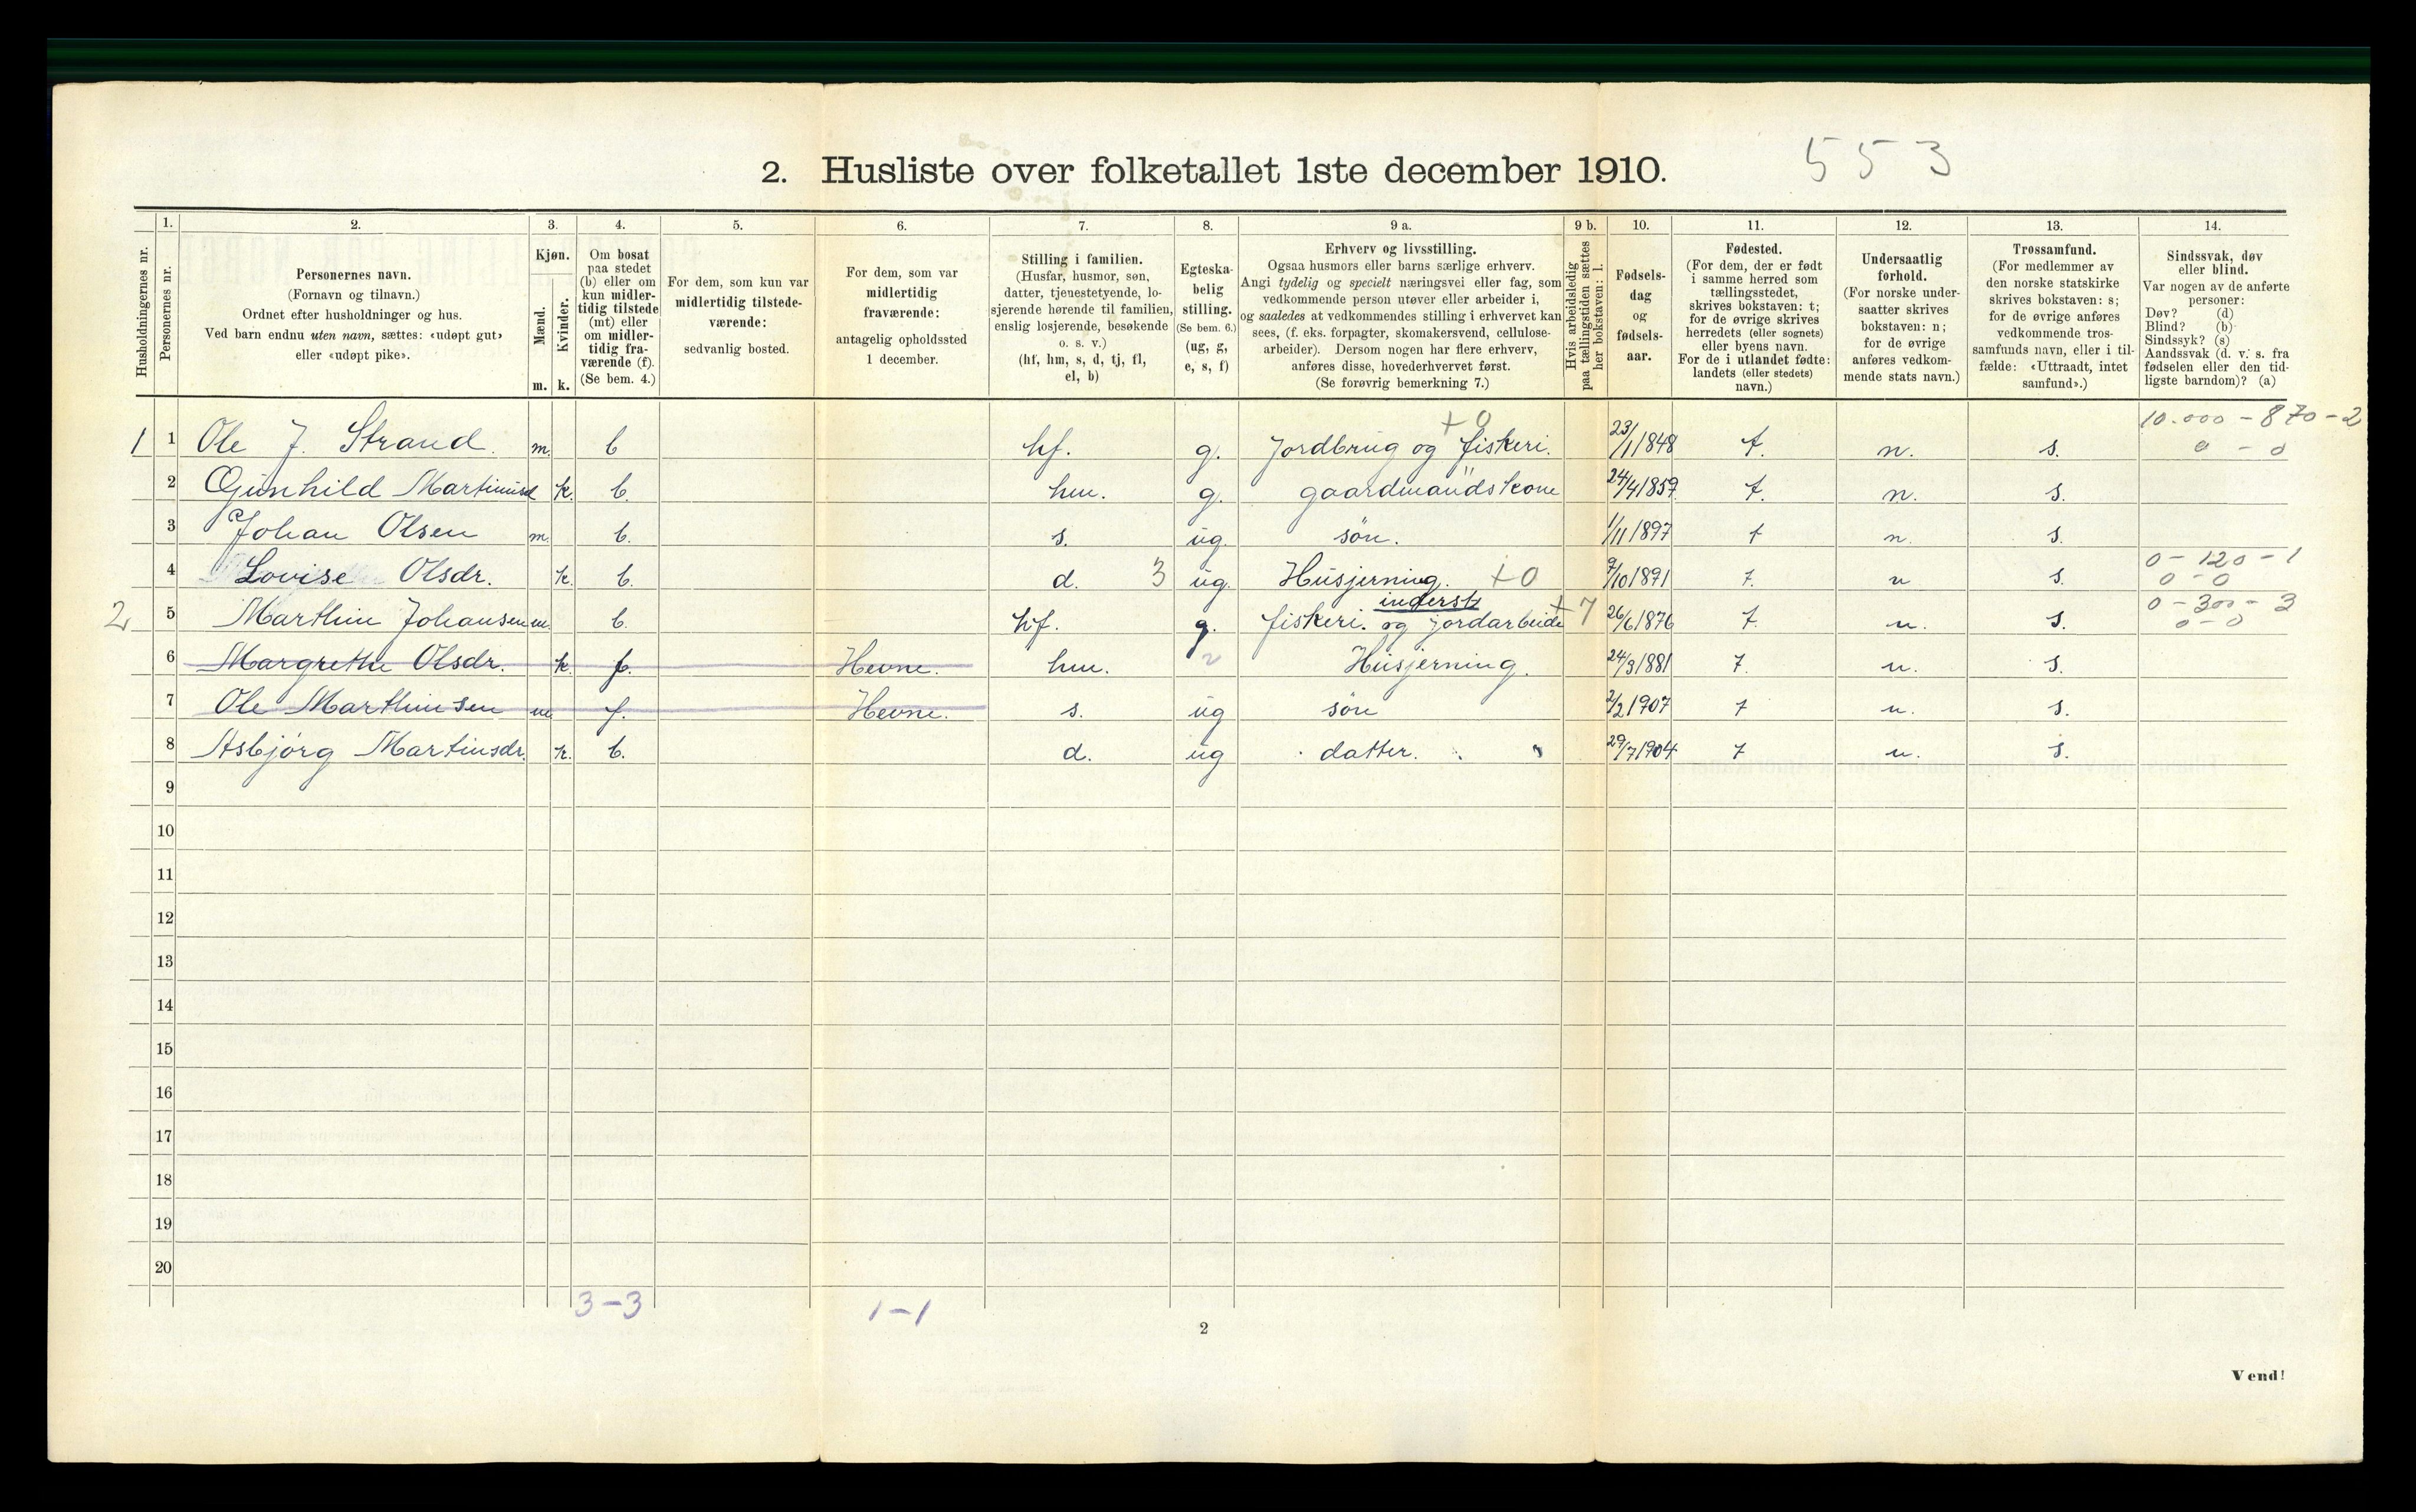 2. Husliste over folketallet 1ste december 1910. 553
Husholdningernes nr.
1. Personernes nr.
2. Personernes navn. (Fornavn og tilnavn.) Ordnet efter husholdninger og hus. Ved barn endnu uten navn, sættes: «udøpt gut» eller «udøpt pike».
3. Kjøn. Mænd. m. Kvinder. k.
4. Om bosat paa stedet (b) eller om kun midlertidig tilstede (mt) eller om midlertidig fraværende (f). (Se bem. 4.)
5. For dem, som kun var midlertidig tilstedeværende: sedvanlig bosted.
6. For dem, som var midlertidig fraværende: antagelig opholdssted 1 december.
7. Stilling i familien. (Husfar, husmor, søn, datter, tjenestetyende, losjerende hørende til familien, enslig losjerende, besøkende o. s. v.) (hf, hm, s, d, tj, fl, el, b)
8. Egteskabelig stilling. (Se bem. 6.) (ug, g, e, s, f)
9 a. Erhverv og livsstilling. Ogsaa husmors eller barns særlige erhverv. Angi tydelig og specielt næringsvei eller fag, som vedkommende person utøver eller arbeider i, og saaledes at vedkommendes stilling i erhvervet kan sees, (f. eks. forpagter, skomakersvend, cellulosearbeider). Dersom nogen har flere erhverv, anføres disse, hovederhvervet først. (Se forøvrig bemerkning 7.)
9 b. Hvis arbeidsledig paa tællingstiden sættes her bokstaven: l.
10. Fødselsdag og fødselsaar.
11. Fødested. (For dem, der er født i samme herred som tællingsstedet, skrives bokstaven: t; for de øvrige skrives herredets (eller sognets) eller byens navn. For de i utlandet fødte: landets (eller stedets) navn.)
12. Undersaatlig forhold. (For norske undersaatter skrives bokstaven: n; for de øvrige anføres vedkommende stats navn.)
13. Trossamfund. (For medlemmer av den norske statskirke skrives bokstaven: s; for de øvrige anføres vedkommende trossamfunds navn, eller i tilfælde: «Uttraadt, intet samfund».)
14. Sindssvak, døv eller blind. Var nogen av de anførte personer: Døv? (d) Blind? (b) Sindssyk? (s) Aandssvak (d. v. s. fra fødselen eller den tidligste barndom)? (a)
+0 10.000 - 870 - 2
1 1 Ole J. Strand. m. b hf. g. Jordbrug og fiskeri. 23/1 1848 t. n. s. 0 - 0
2 Gunhild Martinusd k. b. hm. g. gaardmandskone 24/4 1857 t. n. s.
3 Johan Olsen m. b. s. ug. søn. 1/11 1897 t n. s.
0 - 120 - 1
4 Lovise Olsdr. k. b. d. 3 ug. Husjerning. +0 9/10 1891 t. n s. 0 - 0
inderst 0 - 300 - 3
2 5 Marthin Johansen m. b. hf. g. fiskeri. og jordarbeide +7 26/6 1876 t. n. s. 0 - 0
6 Margrethe Olsdr. k. f. Hevne. hm. Husjerning. 24/9 1881 t. n. s.
7 Ole Marthinsen m f. Hevne. s. ug søn 2/2 1907 t n. s.
8 Asbjørg Martinsdr. k. b. d. ug datter. 29/7 1904 t n. s.
9
10
11
12
13
14
15
16
17
18
19
20
3-3 1-1
2
Vend!